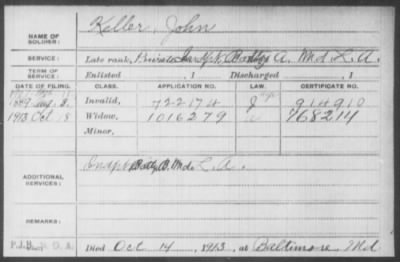 NAME OF SOLDIER: Keller, John
SERVICE: Late rank, Private Indpt Batty A. Md. L. A.
TERM OF SERVICE: Enlisted , 1 Discharged , 1
DATE OF FILING. CLASS. APPLICATION NO. LAW. CERTIFICATE NO.
1889 Aug. 8. Invalid, 722174 914910
1913 Oct 18 Widow, 1016279 768214
Minor,
ADDITIONAL SERVICES: Indpt Batty B. Md. L. A.
REMARKS:
Died Oct 14, 1913, at Baltimore, Md